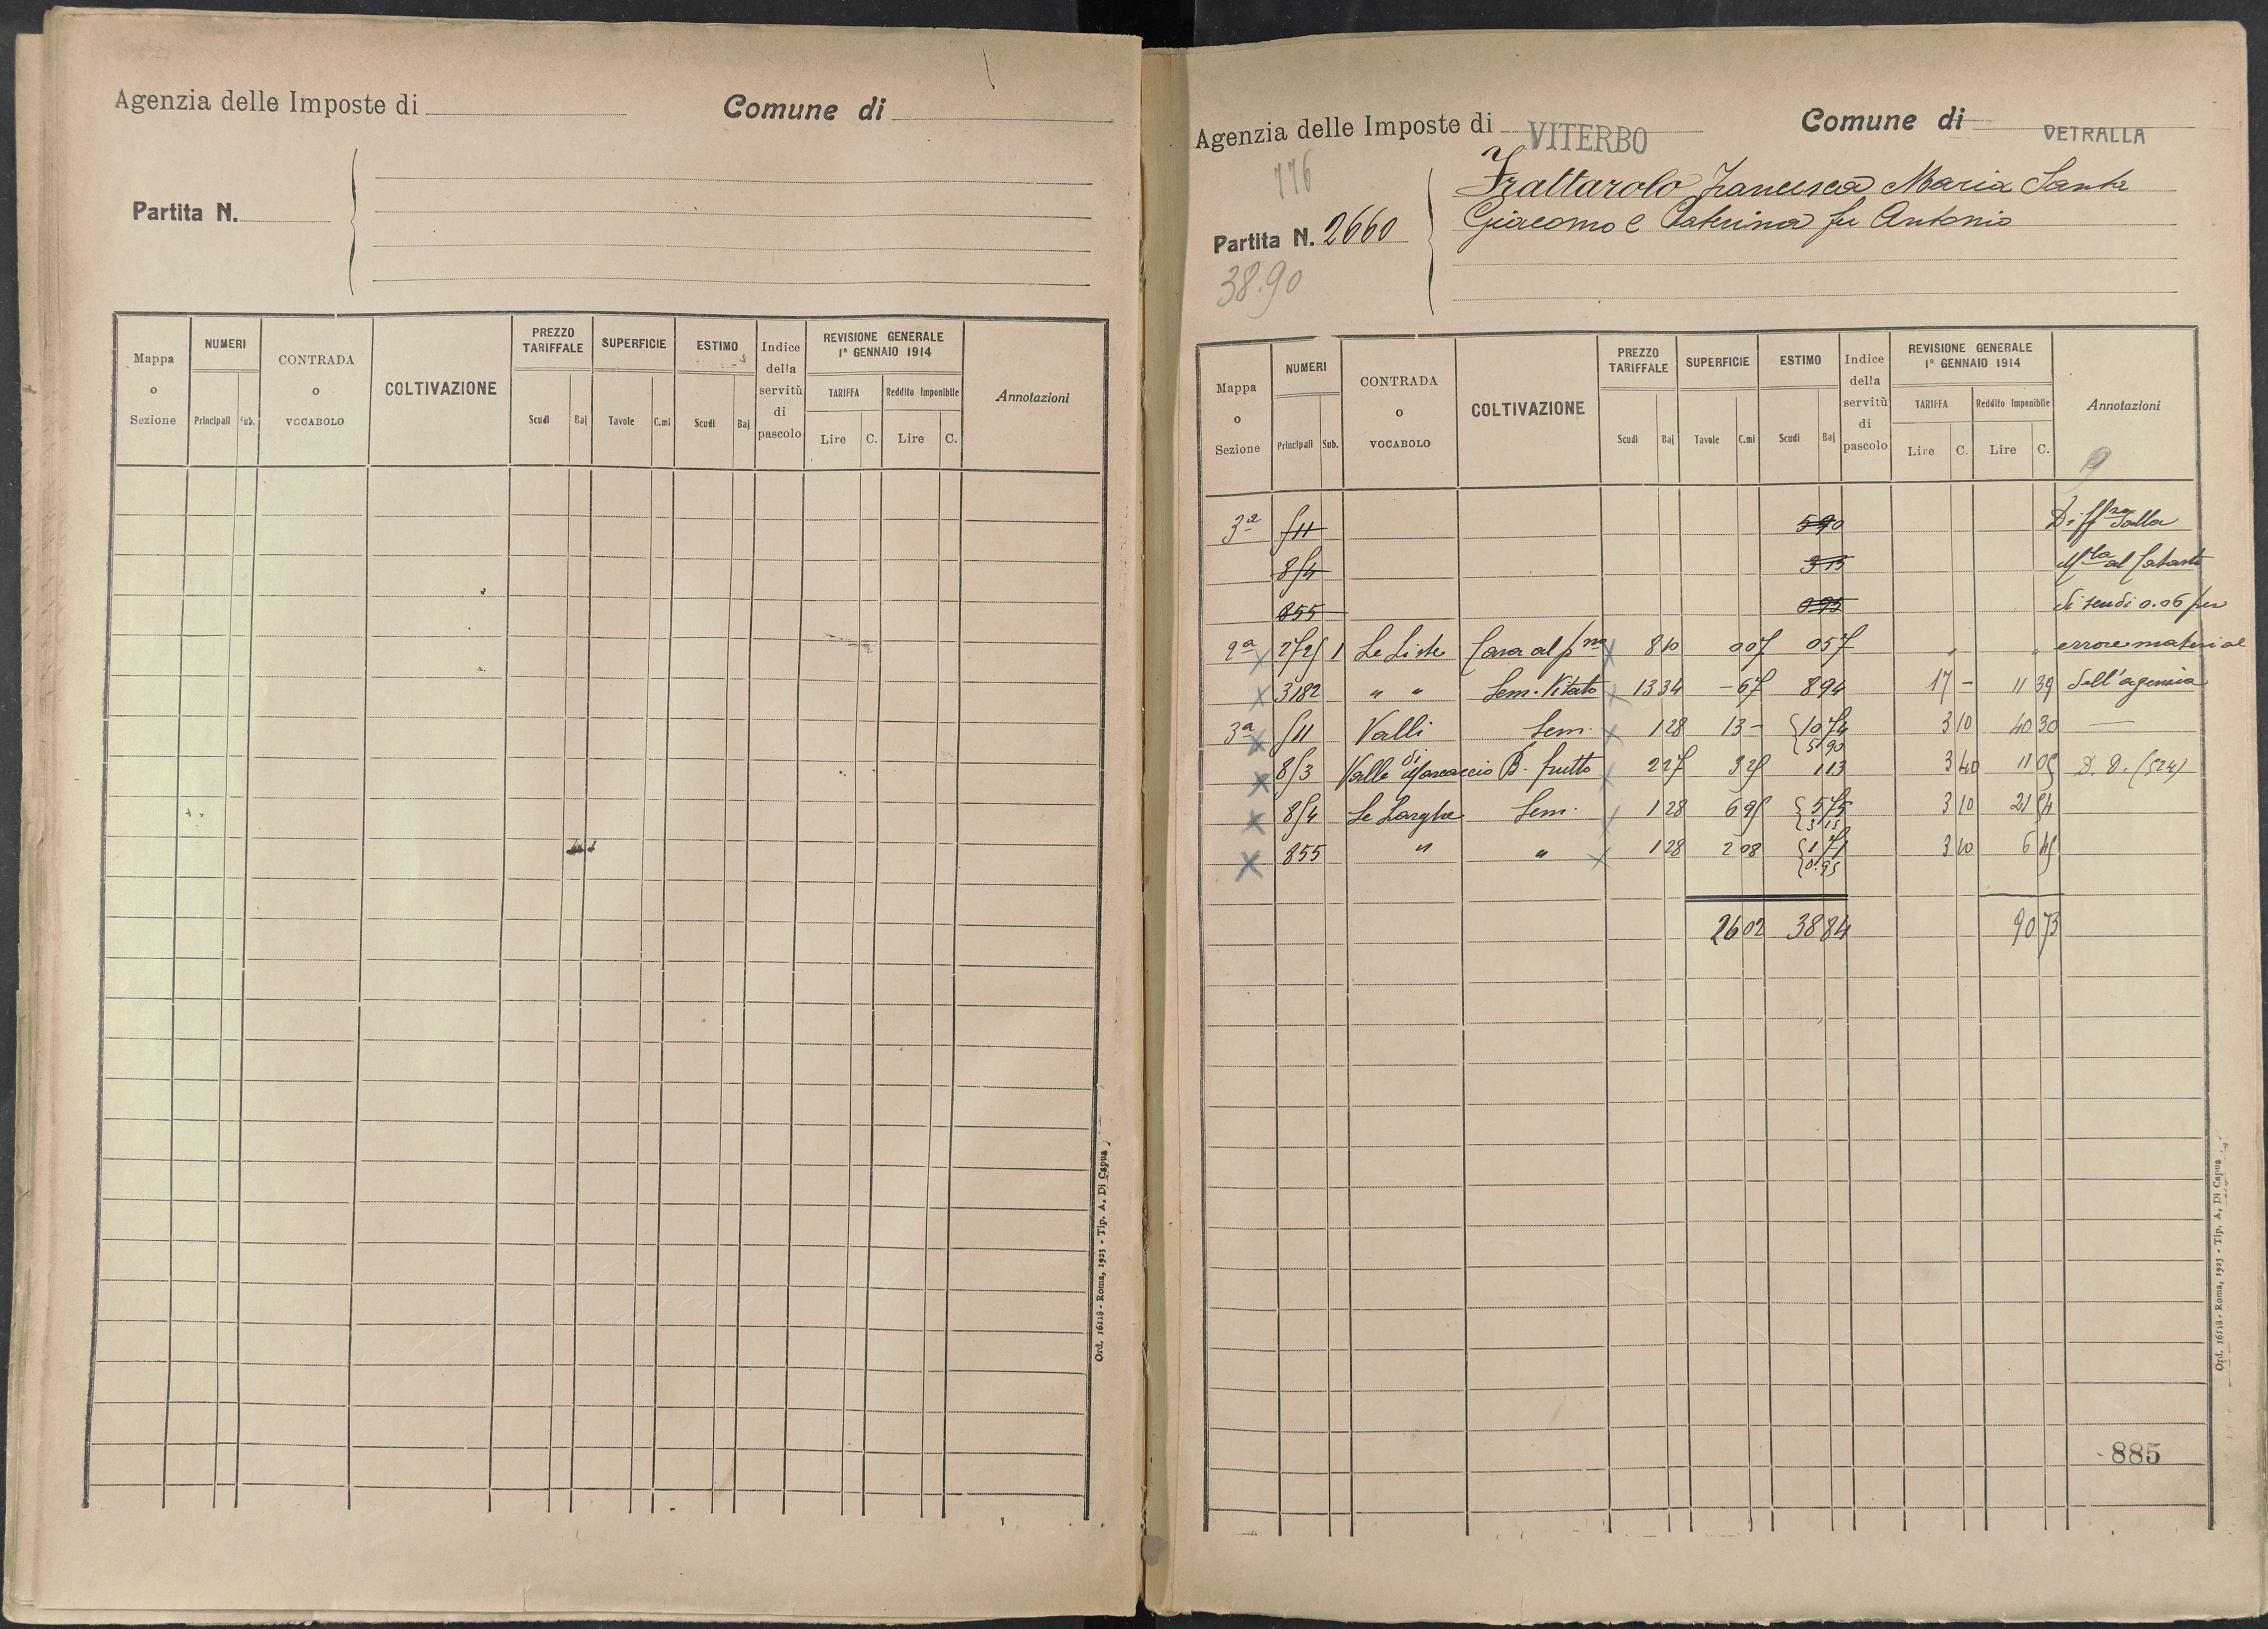 Agenzia delle Imposte di
Comune di
Partita N.
Mappa o Sezione
NUMERI
Principali
Sub.
CONTRADA o VOCABOLO
COLTIVAZIONE
PREZZO TARIFFALE
Scudi
Baj
SUPERFICIE
Tavole
C.mi
ESTIMO
Scudi
Baj
Indice della servitù di pascolo
REVISIONE GENERALE
1° GENNAIO 1914
TARIFFA
Lire
C.
Reddito Imponibile
Lire
C.
Annotazioni
Ord. 16118 - Roma, 1923 - Tip. A. Di Capua
Agenzia delle Imposte di VITERBO
Comune di VETRALLA
776
Frattarolo Francesca Maria Santa
Giacomo e Caterina fu Antonio
Partita N. 2660
38.90
Mappa o Sezione
NUMERI
Principali
Sub.
CONTRADA o VOCABOLO
COLTIVAZIONE
PREZZO TARIFFALE
Scudi
Baj
SUPERFICIE
Tavole
C.mi
ESTIMO
Scudi
Baj
Indice della servitù di pascolo
REVISIONE GENERALE
1° GENNAIO 1914
TARIFFA
Lire
C.
Reddito Imponibile
Lire
C.
Annotazioni
9
3ª 511 5 90 Diffza dalla
854 3 15 al Catasto
855 0 95 di scudi 0.06 per
2ª 1 Le Liste 8 10 0 07 0 57 errore material
3182 " " Sem. Vitato 13 34 - 67 8 94 17 - 11 39 dell'agenzia
3ª 511 Valli Sem. 1 28 13 - 10 74 3 10 40 30
5 90
853 Valle di B. frutto 2 27 3 25 1 13 3 40 11 05 D. D. (524)
854 Le Larghe Sem. 1 28 6 95 5 75 3 10 21 54
3 15
855 " " 1 28 2 08 1 71 3 10 6 45
0.95
26 02 38 84 90 73
885
Ord. 16118 - Roma, 1923 - Tip. A. Di Capua